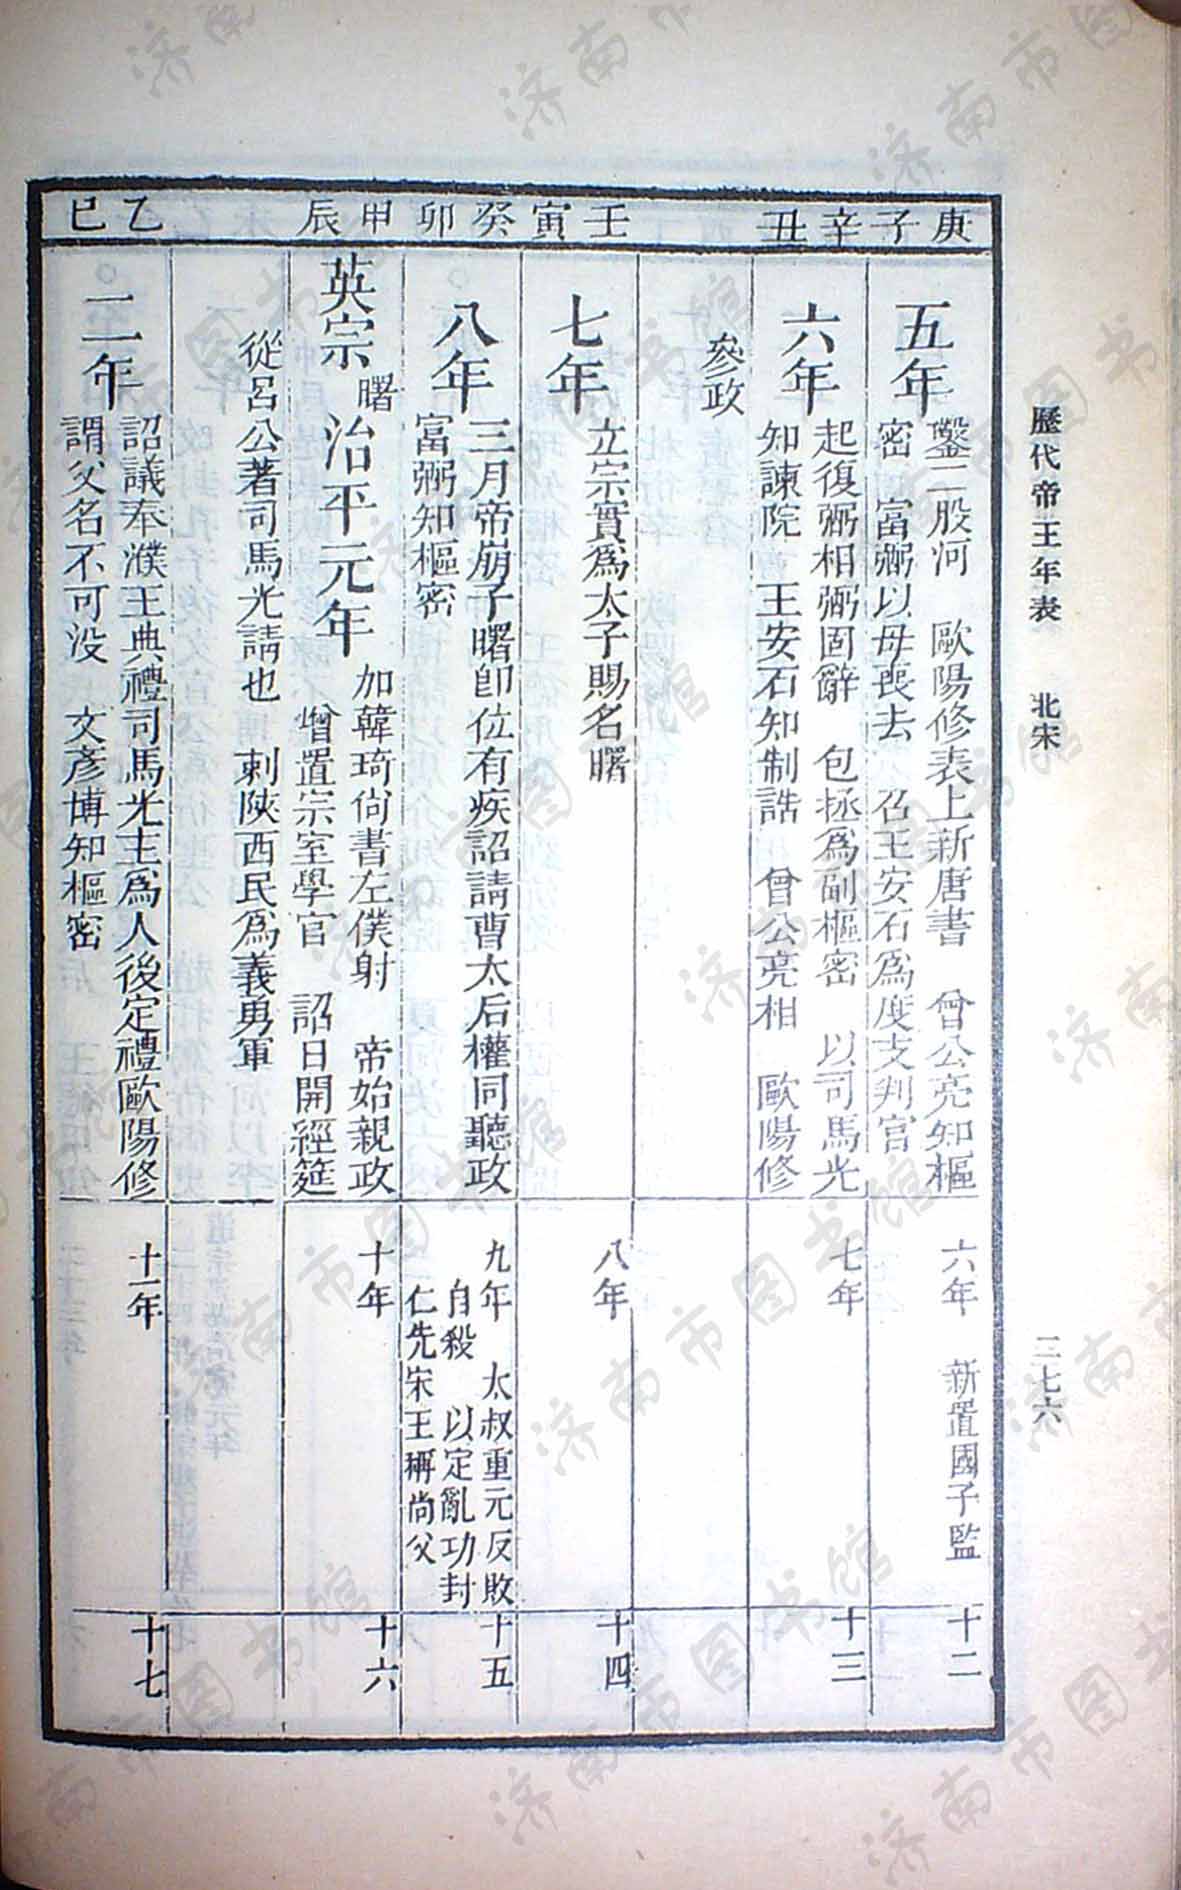 歷代帝王年表　北宋
二七六
庚子
五年
鑿二股河　歐陽修表上新唐書　曾公亮知樞
密　富弼以母喪去　召王安石爲度支判官
六年　新置國子監
十二
辛丑
六年
起復弼相弼固辭　包拯爲副樞密　以司馬光
知諫院　王安石知制誥　曾公亮相　歐陽修
參政
七年
十三
壬寅
七年
立宗實爲太子賜名曙
八年
十四
癸卯
八年
三月帝崩子曙卽位有疾詔請曹太后權同聽政
富弼知樞密
九年　太叔重元反敗
自殺　以定亂功封
仁先宋王稱尚父
十五
甲辰
英宗
曙
治平元年
加韓琦尚書左僕射　帝始親政
增置宗室學官　詔日開經筵
從呂公著司馬光請也　刺陝西民爲義勇軍
十年
十六
乙巳
二年
詔議奉濮王典禮司馬光主爲人後定禮歐陽修
謂父名不可没　文彥博知樞密
十一年
十七
济南市图书馆